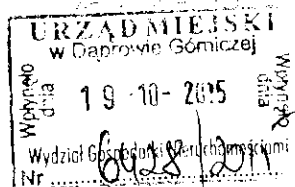 URZĄD MIEJSKI
w Dąbrowie Górniczej
Wpłynęło dnia
19 -10- 2015
Wpłynęło dnia
Wydział Gospodarki Nieruchomościami
Nr